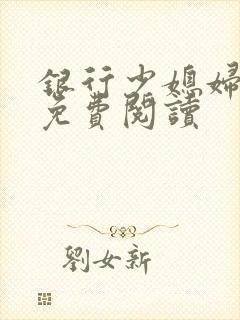 銀行少媳婦
免費閱讀
劉女新